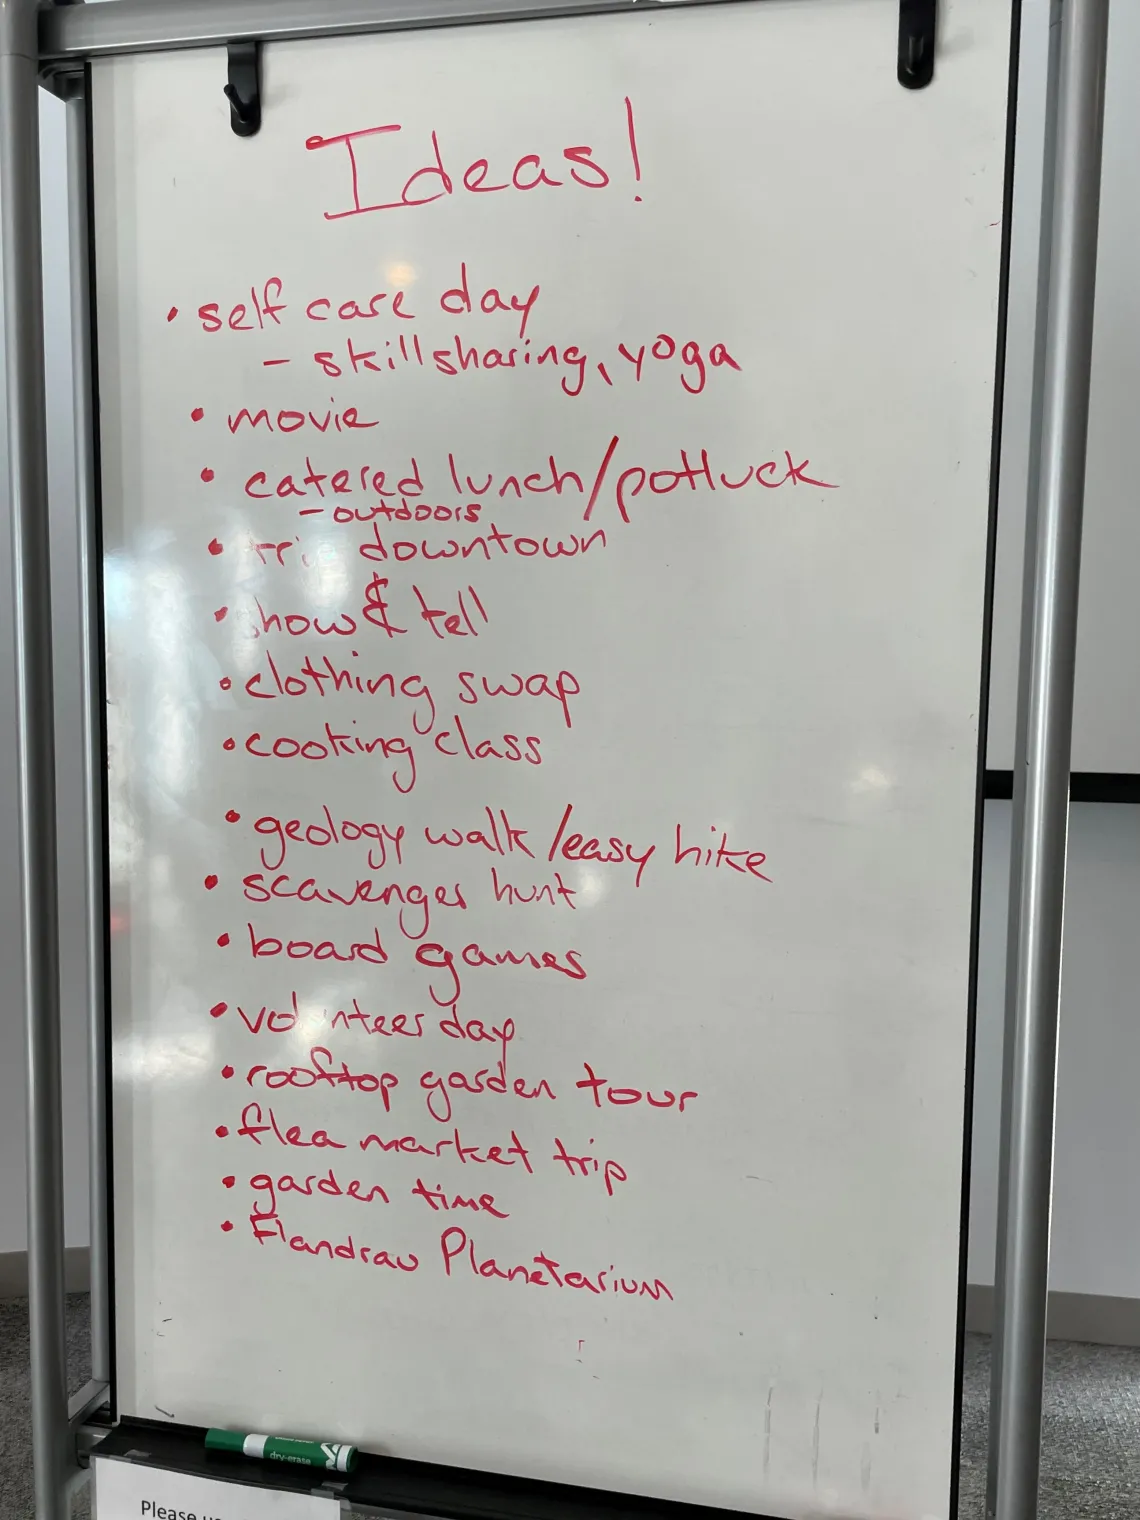 Ideas!
• self care day
- skillsharing, yoga
• movie
• catered lunch/potluck
- outdoors
• trip downtown
• show & tell
• clothing swap
• cooking class
• geology walk/easy hike
• scavenger hunt
• board games
• volunteer day
• rooftop garden tour
• flea market trip
• garden time
• Flandrau Planetarium
dry-erase
Please